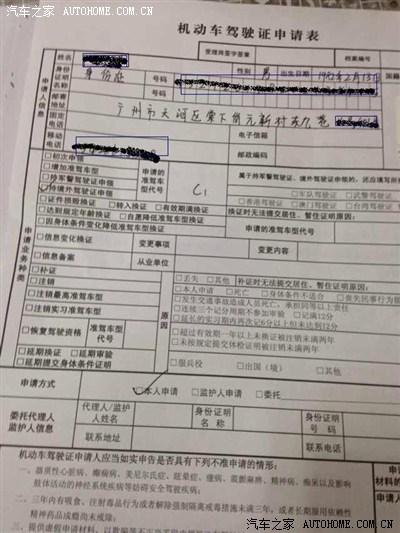 汽车之家
AUTOHOME.COM.CN
机动车驾驶证申请表
受理岗签字签章
档案编号
姓名 性别 男 出生日期 国籍
身份证明名称 身份证 号码
号码
邮寄地址 广州市天河区棠下
固定电话 电子信箱
移动电话 邮政编码
申请人信息
□初次申领
□增加准驾车型
□持军警驾驶证申领
□持境外驾驶证申领
申请的准驾车型代号 C1
属于持军警驾驶证、境外驾驶证申领的，还应填写所
□军队驾驶证 □武警驾驶
□香港驾驶证 □澳门驾驶证 □台湾驾驶证
□证件损毁换证 □转入换证 □有效期满换证
□达到规定年龄换证 □自愿降低准驾车型换证
□因身体条件变化降低准驾车型换证
申请的准驾车型代号
换证时无法提交居住、暂住证明原因：
□信息变化换证 变更事项 变更内容
□信息备案 从业单位
申请业务种类
□补证 □丢失 □其他 补证时无法提交居住、暂住证明原因：
□注销 原因 □本人申请 □死亡 □身体条件不适合 □丧失民事行为
□注销最高准驾车型 □发生交通事故造成人员死亡，承担同等以上责任
□注销实习准驾车型 □连续三个记分周期不参加审验 □记满12分
□延长的实习期内再次记6分以上但未达到12分
□恢复驾驶资格 准驾车型代号
□超过有效期一年以上未换证被注销未满两年
□未按规定提交体检证明被注销未满两年
□延期换证 □延期审验
□延期提交身体条件证明
□服兵役 □出国（境） □其他
申请方式 □本人申请 □监护人申请 □委托
委托代理人监护人信息 代理人/监护人姓名 身份证明名称 身份证明号码
联系地址 联系电话
机动车驾驶证申请人应当如实申告是否具有下列不准申请的情形：
一、器质性心脏病、癫痫病、美尼尔氏症、眩晕症、癔病、震颤麻痹、精神病、痴呆以及影响
肢体活动的神经系统疾病等妨碍安全驾驶疾病；
二、三年内有吸食、注射毒品行为或者解除强制隔离戒毒措施未满三年，或者长期服用依赖性
精神药品成瘾尚未戒除；
申请
材料的
汽车之家
AUTOHOME.COM.CN